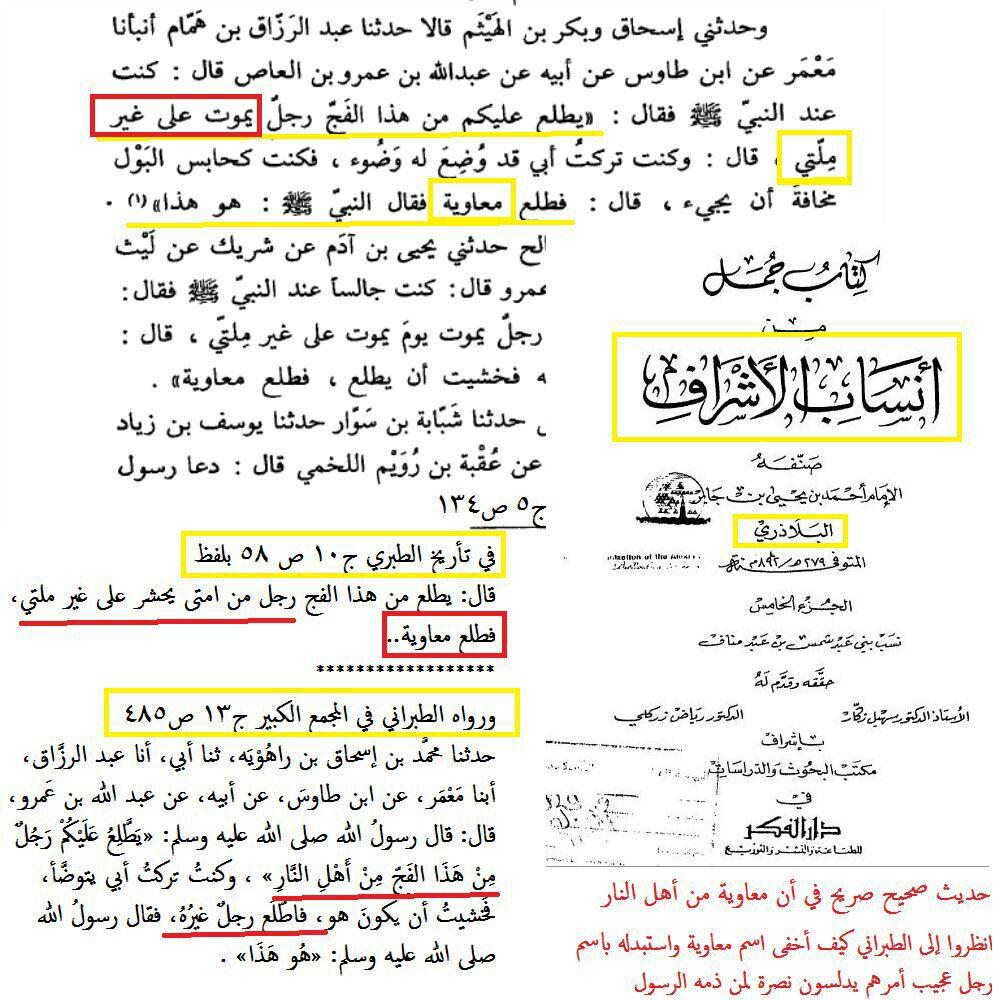 وحدثني إسحاق وبكر بن الهَيْثَم قالا حدثنا عبد الرَزّاق بن هَمّام أنبأنا
مَعْمَر عن ابن طاوس عن أبيه عن عبدالله بن عمرو بن العاص قال : كنت
عند النبيّ ﷺ فقال : «يطلع عليكم من هذا الفَجّ رجلٌ يموت على غير
مِلّتي ، قال : وكنت تركتُ أبي قد وُضِعَ له وَضُوء ، فكنت كحابس البَوْل
مخافةَ أن يجيء ، قال : فطلع معاوية فقال النبيّ ﷺ : هو هذا»(١) .
الح حدثني يحيى بن آدَم عن شريك عن لَيْث
عمرو قال: كنت جالساً عند النبيّ ﷺ فقال:
رجلٌ يموت يومَ يموت على غير مِلتّي ، قال :
ه فخشيت أن يطلع ، فطلع معاوية» .
حدثنا شَبّابة بن سَوّار حدثنا يوسف بن زياد
عن عُقْبة بن رُوَيْم اللخمي قال : دعا رسول
ج٥ ص١٣٤
في تأريخ الطبري ج١٠ ص ٥٨ بلفظ
قال: يطلع من هذا الفج رجل من امتى يحشر على غير ملتي،
فطلع معاوية..
******************
ورواه الطبراني في المجمع الكبير ج١٣ ص٤٨٥
حدثنا محمَّد بن إسحاق بن راهُوْيَه، ثنا أبي، أنا عبد الرزَّاق،
أبنا مَعْمَر، عن ابن طاوسَ، عن أبيه، عن عبد الله بن عَمرو،
قال: قال رسولُ الله صلى الله عليه وسلم: «يَطَّلِعُ عَلَيْكُمْ رَجُلٌ
مِنْ هَذَا الفَجّ مِنْ أَهْلِ النَّارِ» ، وكنتُ تركتُ أبي يتوضَّأ،
فخشيتُ أن يكونَ هو، فاطَّلَع رجلٌ غيرُهُ، فقال رسولُ الله
صلى الله عليه وسلم: «هُوَ هَذَا» .
كِتَابُ جُمَل
مِن
أنسَابِ الأَشرَافِ
صَنّفَهُ
الإمَام أحمَد بن يحيَى بن جَابِر
البَلَاذري
المتوفى ٢٧٩هـ/٨٩٢م
الجزء الخامس
نسَب بني عَبد شمس بن عَبد مناف
حقّقه وقدّم لَه
الأستاذ الدكتور سهيل زكّار
الدكتور رياض زركلي
بإشراف
مكتب البحوث والدراسات
في
دار الفكر
للطبَاعة والنشر والتوزيع
حديث صحيح صريح في أن معاوية من أهل النار
انظروا إلى الطبراني كيف أخفى اسم معاوية واستبدله باسم
رجل عجيب أمرهم يدلسون نصرة لمن ذمه الرسول